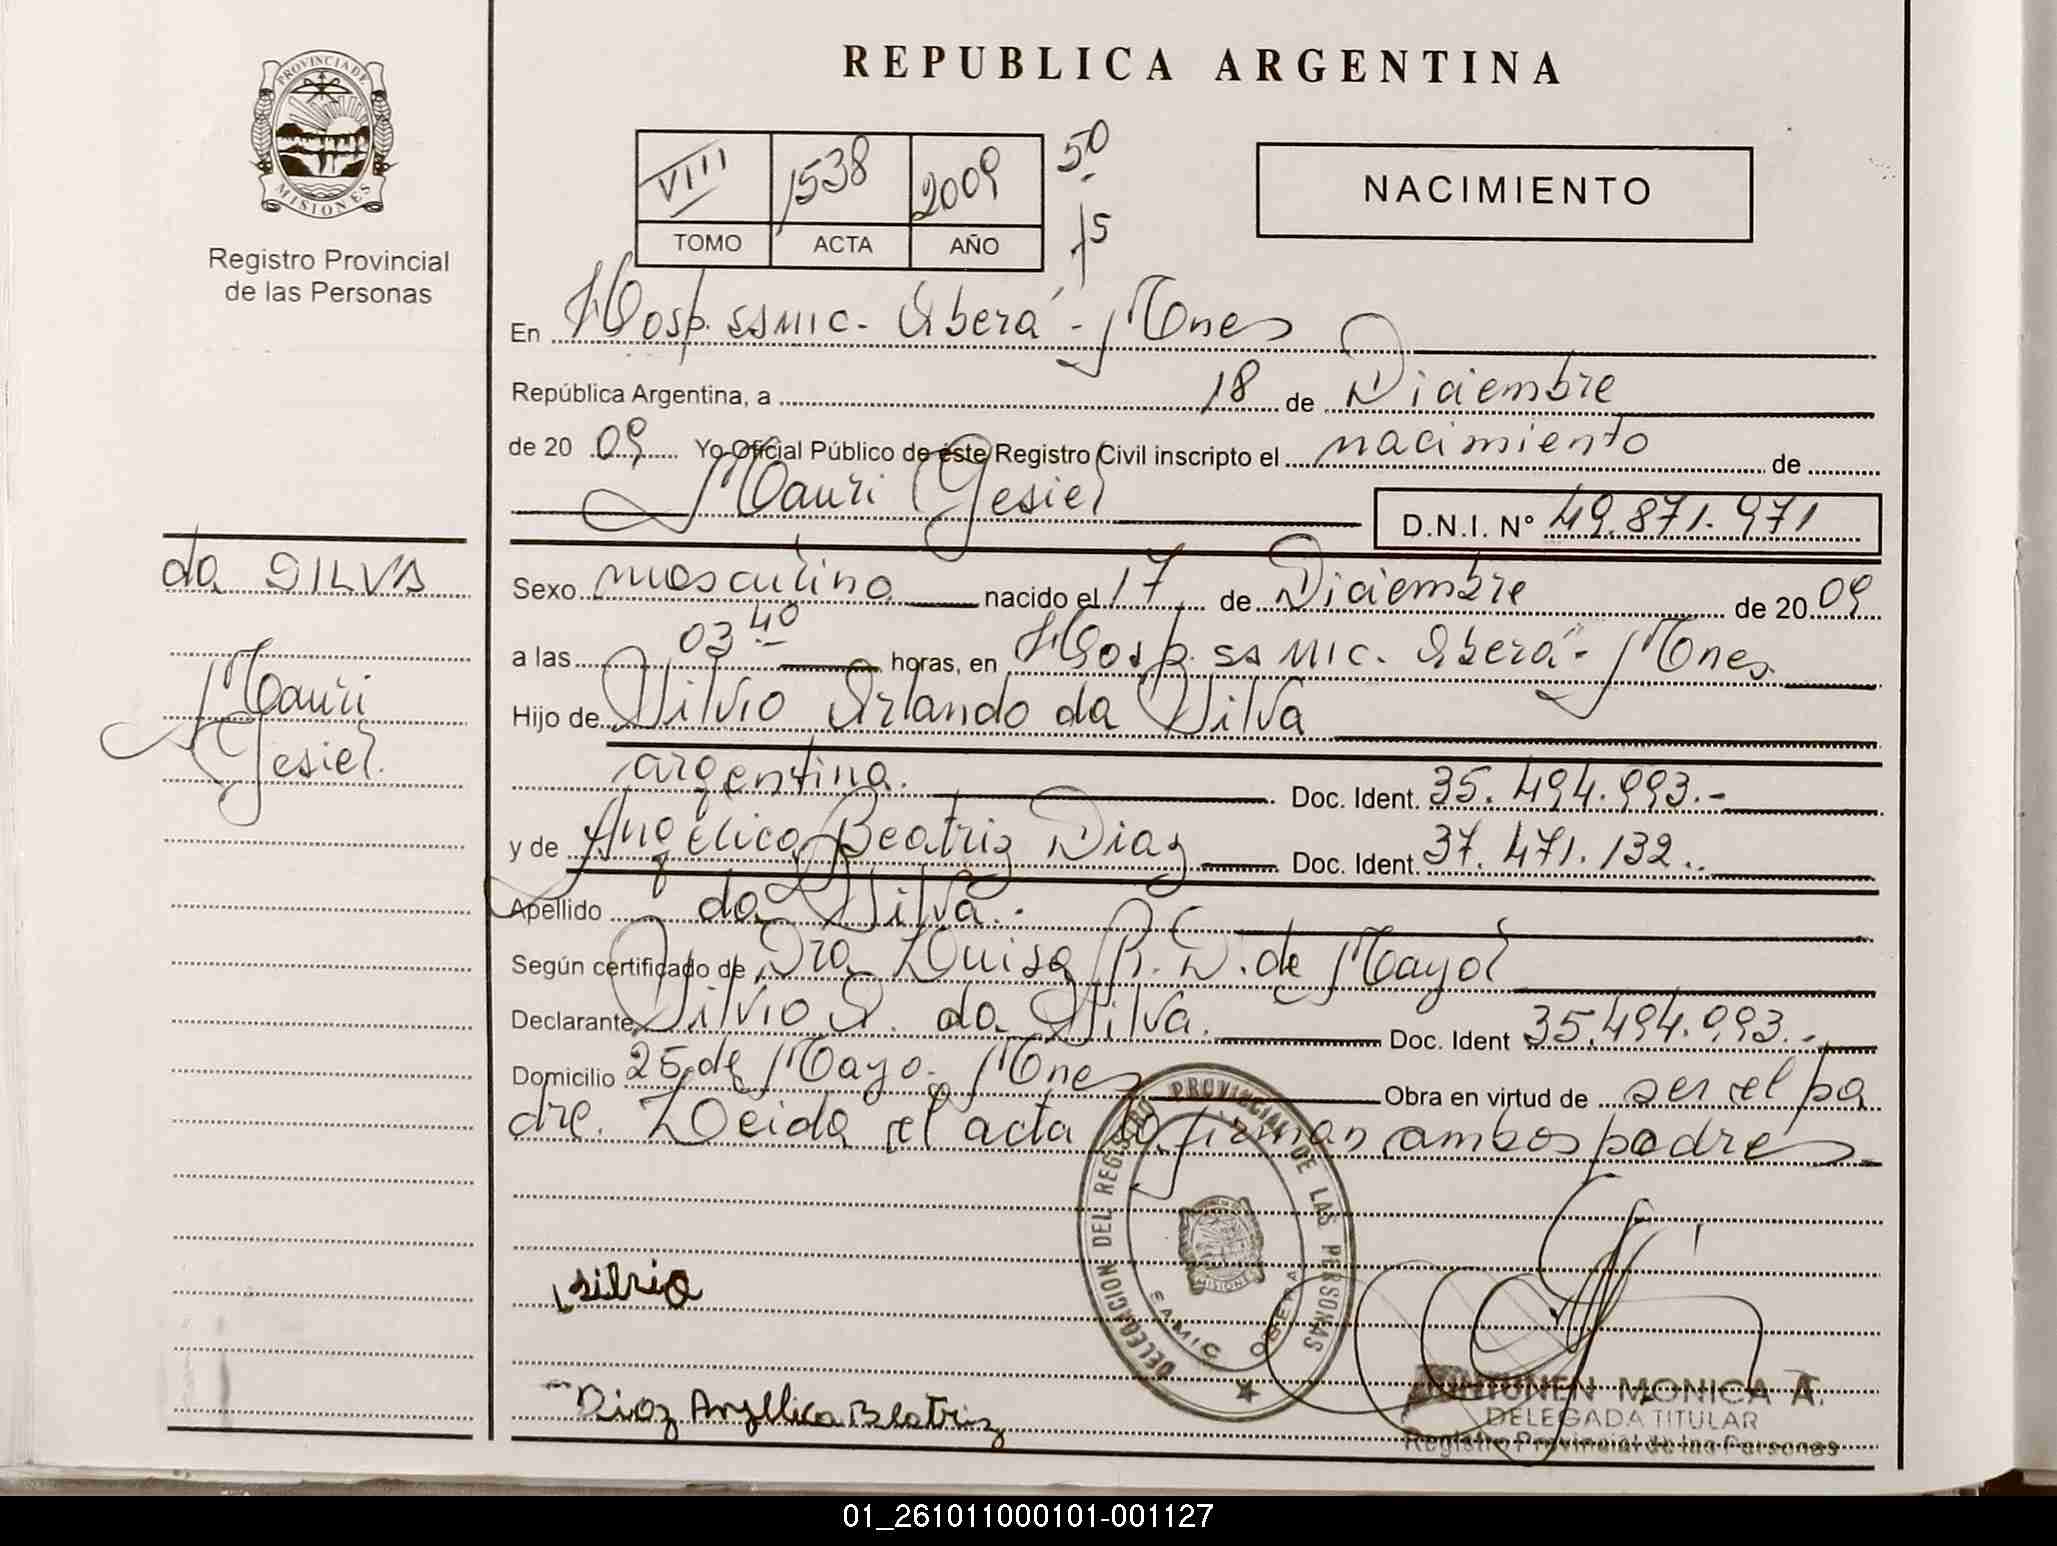 PROVINCIA DE
MISIONES
Registro Provincial
de las Personas
da SILVA
Mauri
Gesiel.
REPUBLICA ARGENTINA
VIII 1538 2009 50
TOMO ACTA AÑO 15
NACIMIENTO
En Hosp. SSMIC - Oberá - Mnes
República Argentina, a 18 de Diciembre
de 20 09 Yo Oficial Público de éste Registro Civil inscripto el nacimiento de
Mauri Gesiel D.N.I. N° 49.871.971
Sexo masculino nacido el 17 de Diciembre de 20 09
a las 03 40 horas, en Hosp. SSMIC. Oberá - Mnes.
Hijo de Silvio Orlando da Silva
argentina. Doc. Ident. 35.494.993.-
y de Angélica Beatriz Diaz Doc. Ident. 37.471.132..
Apellido da Silva.-
Según certificado de Dra Luisa R. D. de Mayol
Declarante Silvio O. da Silva. Doc. Ident 35.494.993.-
Domicilio 25 de Mayo. Mnes Obra en virtud de ser el pa
dre. Leida el acta la firman ambos padres
DELEGACION DEL REGISTRO PROVINCIAL DE LAS PERSONAS
MISIONES
SAMIC OBERA
silvio
Dioz Angllica Beatriz
MONICA A.
DELEGADA TITULAR
Registro Provincial de las Personas
01_261011000101-001127